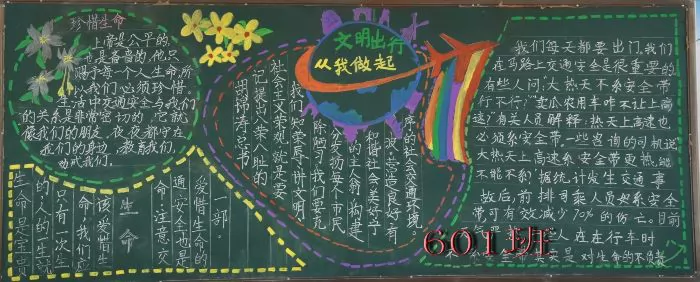 珍惜生命
上帝是公平的
也是吝啬的,他只
赐予每个人生命,所
以我们必须珍惜。
生活中交通安全与我们
的关系是非常密切的,它就
像我们的朋友,夜夜都守在
我们的身边,教育我们,
劝诫我们。
文明出行
从我做起
胡锦涛总书
记提出八荣八耻的
社会主义荣观,就是要
我们知荣辱,讲文明,
除陋习,我们要充
分发扬每个市民
的主人翁,构建
和谐社会,美好宁
波,营造良好有
序的社会交通环境。
一部
爱惜生命的
交通安全也是
生命,注意交
生命
该爱惜生
命,我们应
只有一次生
的,人的一生就
生命是宝贵
我们每天都要出门,我们
在马路上交通安全是很重要的
有些人问:大热天不系安全带
行不行?卖瓜农用车咋不让上高
速?有关人员解释:热天上高速也
必须系安全带,一些咨询的司机说
大热天上高速系安全带更热,能
不能不系?据统计发生交通事
故后,前排司乘人员如系安全
带可有效减少70%的伤亡。目前
人在在行车时
安全带,实是对生命的不负责
601班